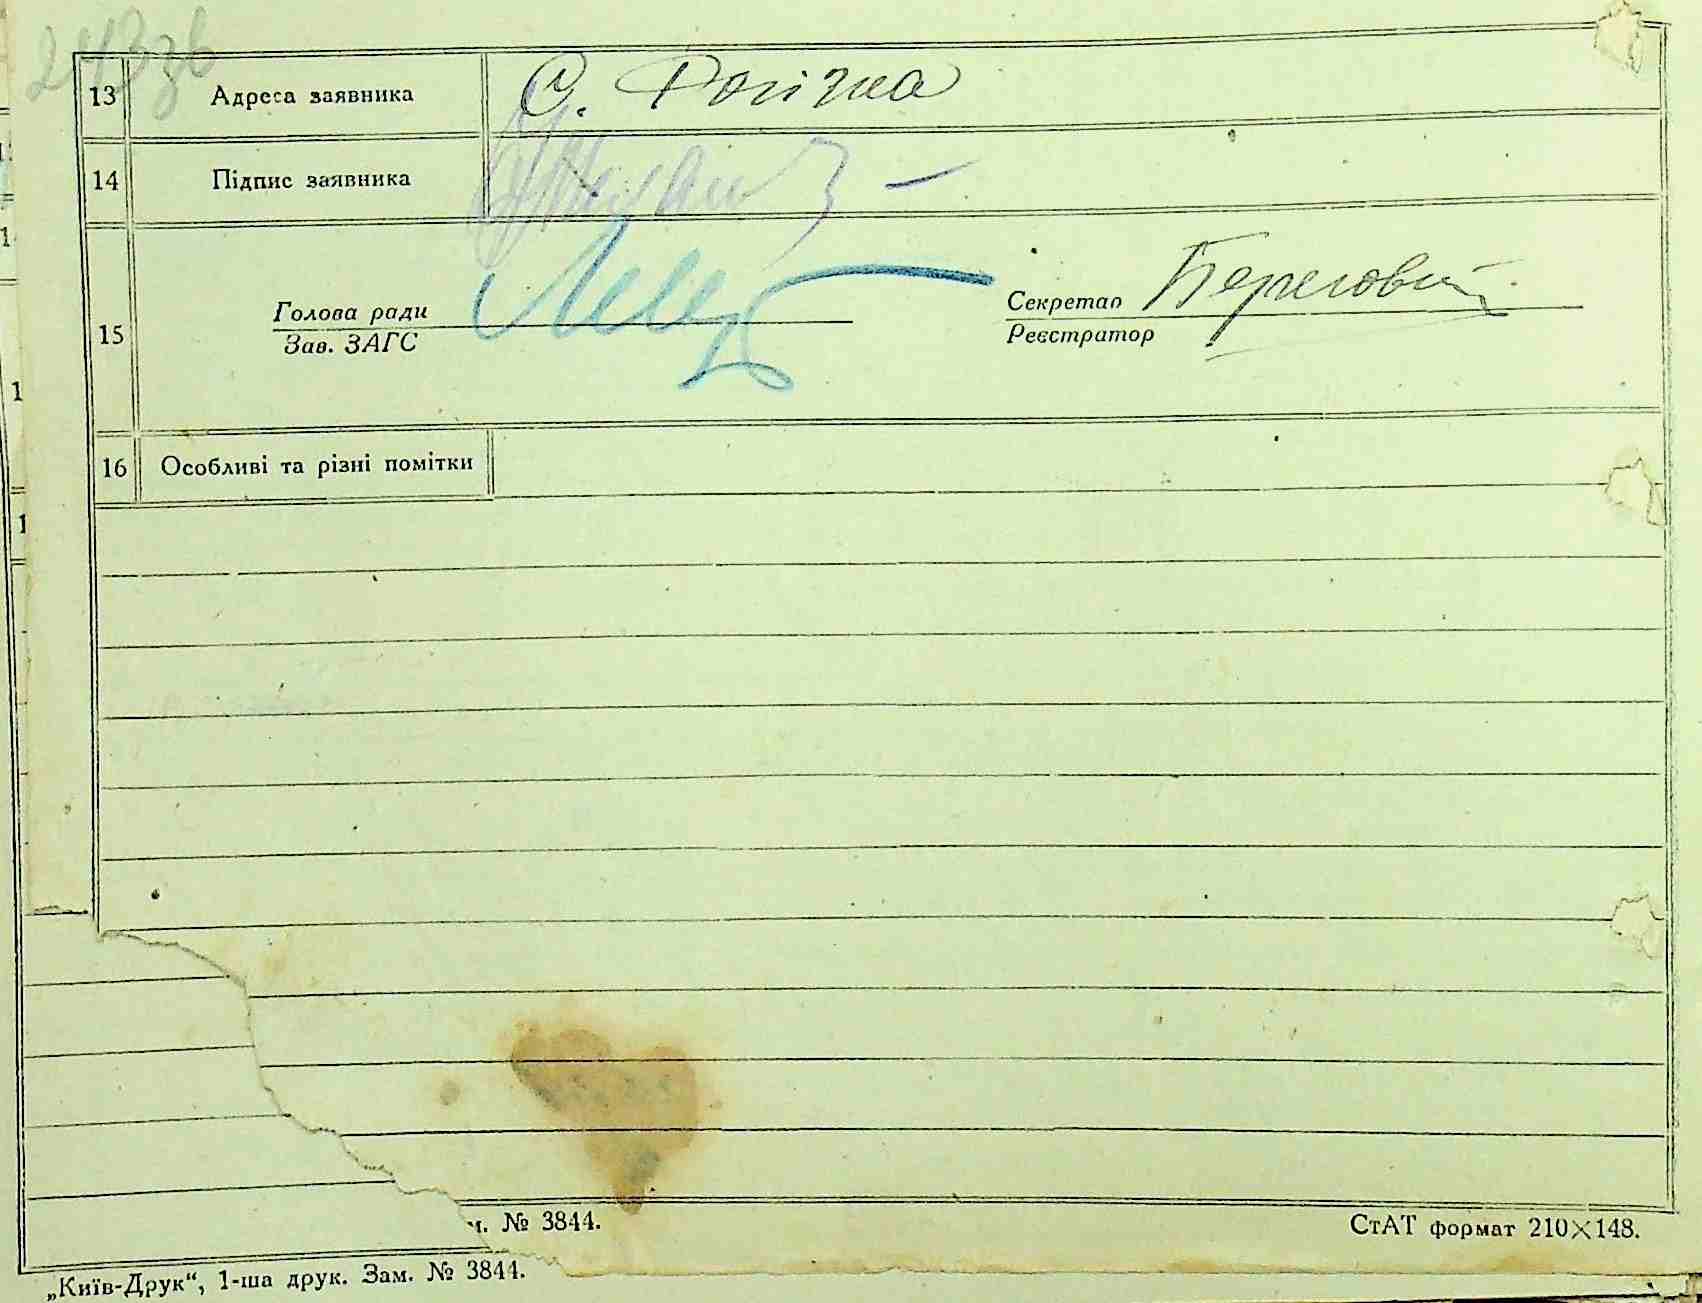 243зв
13 Адреса заявника С. Рогізна
14 Підпис заявника
Голова ради Секретар Береговий
15
Зав. ЗАГС Реєстратор
16 Особливі та різні помітки
м. № 3844. СтАТ формат 210×148.
„Київ-Друк“, 1-ша друк. Зам. № 3844.